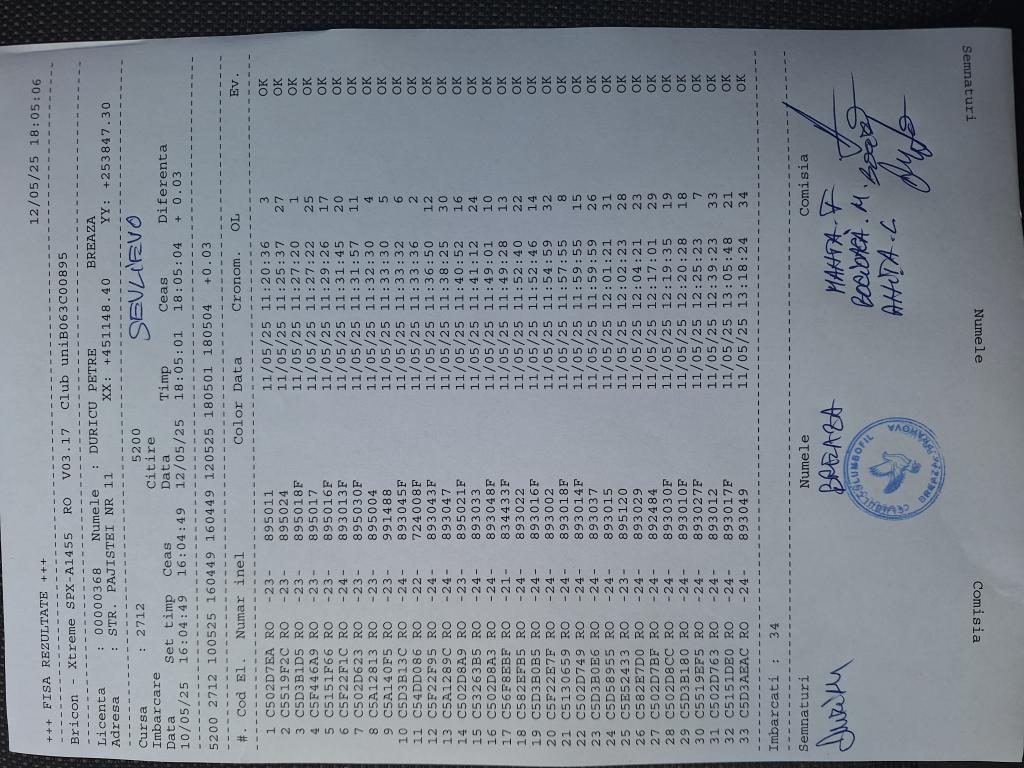 12/05/25 18:05:06
+++ FISA REZULTATE +++
Bricon - Xtreme SPX-A1455 RO V03.17 Club uniB063C00895
Licenta : 00000368 Numele : DURICU PETRE BREAZA
Adresa : STR. PAJISTEI NR 11 XX: +451148.40 YY: +253847.30
Cursa : 2712 5200 SEVLIEVO
Imbarcare Citire
Data Set timp Ceas Data Timp Ceas Diferenta
10/05/25 16:04:49 16:04:49 12/05/25 18:05:01 18:05:04 + 0.03
5200 2712 100525 160449 160449 120525 180501 180504 +0.03
#. Cod El. Numar inel Color Data Cronom. OL Ev.
1 C502D7EA RO -23- 895011 11/05/25 11:20:36 3 OK
2 C5519F2C RO -23- 895024 11/05/25 11:25:37 27 OK
3 C5D3B1D5 RO -24- 893018F 11/05/25 11:27:20 1 OK
4 C5F446A9 RO -23- 895017 11/05/25 11:27:22 25 OK
5 C5151F66 RO -23- 895016F 11/05/25 11:29:26 17 OK
6 C5F22F1C RO -24- 893013F 11/05/25 11:31:45 20 OK
7 C502D623 RO -23- 895030F 11/05/25 11:31:57 11 OK
8 C5A12813 RO -23- 895004 11/05/25 11:32:30 4 OK
9 C5A140F5 RO -23- 991488 11/05/25 11:33:30 5 OK
10 C5D3B13C RO -24- 893045F 11/05/25 11:33:32 6 OK
11 C54DD086 RO -22- 724008F 11/05/25 11:33:36 2 OK
12 C5F22F95 RO -24- 893043F 11/05/25 11:36:50 12 OK
13 C5A1289C RO -24- 893047 11/05/25 11:38:25 30 OK
14 C502D8A9 RO -23- 895021F 11/05/25 11:40:52 16 OK
15 C53263B5 RO -24- 893033 11/05/25 11:41:12 24 OK
16 C502D8A3 RO -24- 893048F 11/05/25 11:49:01 10 OK
17 C56F8EBF RO -21- 834433F 11/05/25 11:49:28 13 OK
18 C582EFB5 RO -24- 893022 11/05/25 11:52:40 22 OK
19 C5D3B0B5 RO -24- 893016F 11/05/25 11:52:46 14 OK
20 C5F22E7F RO -24- 893002 11/05/25 11:54:59 32 OK
21 C5130659 RO -24- 893018F 11/05/25 11:57:55 8 OK
22 C502D749 RO -24- 893014F 11/05/25 11:59:55 15 OK
23 C5D3B0E6 RO -24- 893037 11/05/25 11:59:59 26 OK
24 C5D58955 RO -24- 893015 11/05/25 12:01:21 31 OK
25 C5E52433 RO -23- 895120 11/05/25 12:02:23 28 OK
26 C582E7D0 RO -24- 893029 11/05/25 12:04:21 23 OK
27 C502D7BF RO -24- 892484 11/05/25 12:17:01 29 OK
28 C502D8CC RO -24- 893030F 11/05/25 12:19:35 19 OK
29 C5D3B180 RO -24- 893010F 11/05/25 12:20:28 18 OK
30 C5519EF5 RO -24- 893027F 11/05/25 12:25:23 7 OK
31 C502D763 RO -24- 893012 11/05/25 12:39:23 33 OK
32 C5151DE0 RO -24- 893017F 11/05/25 13:05:48 21 OK
33 C5D3AEAC RO -24- 893049 11/05/25 13:18:24 34 OK
Imbarcati : 34
Semnaturi Numele Comisia
BREAZA
BREAZA-PRAHOVA
Comisia Numele Semnaturi